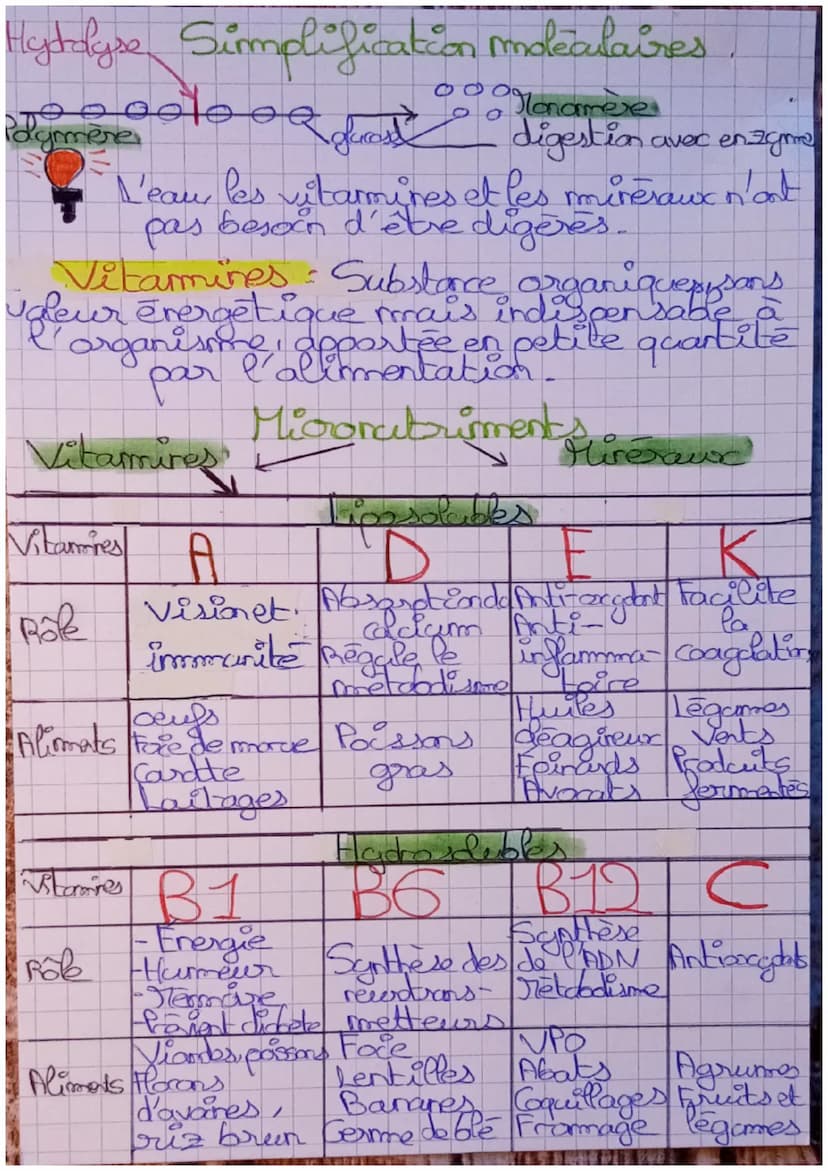 Hydrolyse Simplification moléculaires.
Monomère
Polymère glucose digestion avec enzyme
L'eau, les vitamines et les minéraux n'ont
pas besoin d'être digérés.
Vitamines : Substance organique, sans
valeur énergétique mais indispensable à
l'organisme, apportée en petite quantité
par l'alimentation.
Micronutriments
Vitamines Minéraux
Liposolubles
Vitamines A D E K
Rôle
Vision et
immunité
Absorption du
calcium
Régule le
métabolisme
Anti-oxydant
Anti-
inflamma-
toire
Facilite
la
coagulation
Aliments
oeufs
Foie de morue
Carotte
Laitages
Poissons
gras
Huiles
oléagineux
Epinards
Avocats
Légumes
Verts
Produits
fermentés
Hydrosolubles
Vitamines B1 B6 B12 C
Rôle
- Energie
- Humeur
- Mémoire
- Prévient diabète
Synthèse des
neurotrans-
metteurs
Synthèse
de l'ADN
Métabolisme
Antioxydants
Aliments
Viandes, poissons
flocons
d'avoines,
riz brun
Foie
Lentilles
Bananes
Germe de blé
VPO
Abats
Coquillages
Fromage
Agrumes
Fruits et
légumes